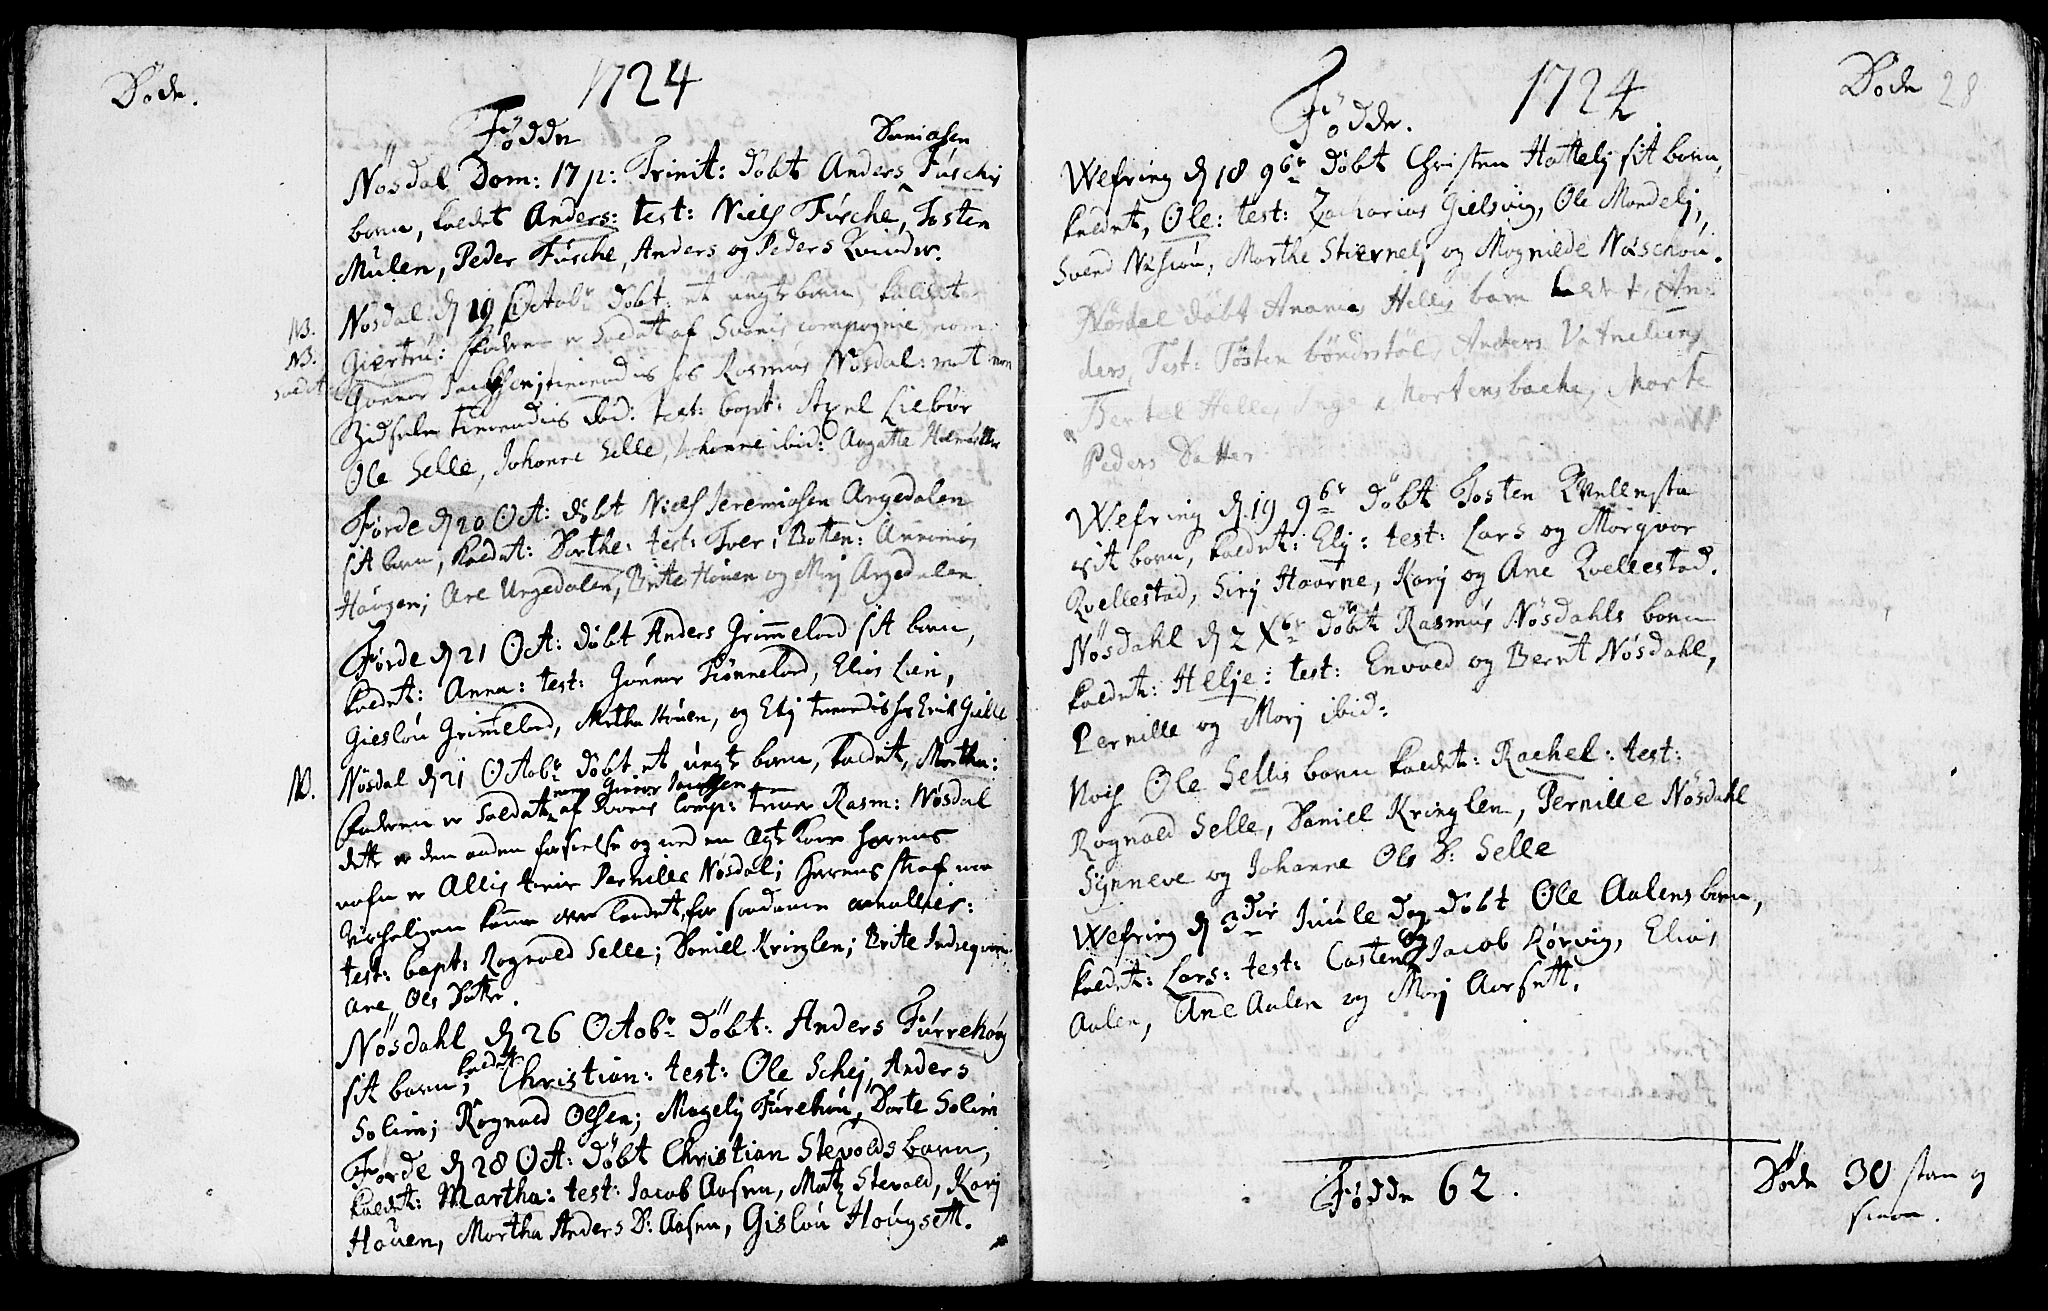 Döde.
1724
Födde
Danielsen
Nösdal Dom: 17 p: Trinit: döbt Anders Fúrschis
barn, kaldet Anders: test: Niels Fúrsche, Tosten
Múlen, Peder Fúrsche, Anders og Peders Quinder.
NB. Nösdal d 19 Octobr döbt et uægte barn kaldet
NB. Giertru: faderen er Soldat af Svanis compagnie nom:
soldat Gunnar tienendis hs Rasmus Nösdal: mot: nom
tienendis ibid: test: bapt: Axel Liebör
Ole Selle, Johanne Selle, Johanne ibid: Aagatte
Förde d 20 Oct: döbt Niels Jeremiasen Angedalen
sit barn, kaldet: Dorthe: test: Iver i Botten:
Haúgen; Ane Angedalen, Brite Hauen og Marj Angedalen.
Förde d 21 Oct: döbt Anders Grimmelad sit barn,
kaldet: Anna: test: Gunnar Grimmelad, Elias Lien,
Gieslöú Grimmelad, Martha Houen, og Elj tienendis hs Erik Gielle
NB. Nösdal d 21 Octobr döbt et uægte barn, kaldet, Martha:
nom: Gunnar
faderen er Soldat af Svanis Comp: tiener Rasm: Nösdal
dette er den anden forseelse og med en ægte kone hvorens
nafn er Allis tienir Pernille Nösdal;
kommer over landet, for saadanne canallier:
test: bapt: Rognald Selle; Daniel Kringlen; Brite
Ane Ols Datter.
Nösdahl d 26 Octobr döbt: Anders Fúrrehöj
kaldet
sit barn; Christian: test: Ole Schej, Anders
Solem; Rognald Olsen; Magelj Fúrehöú, Dorte Solem
Förde d 28 Oct: döbt Christian Stevolds barn,
kaldet: Martha: test: Jacob Aasen, Matz Stevold, Karj
Houen, Martha Anders D: Aasen, Gislöú Hougsett.
Födde.
1724
Döde 28
Wefring d 18 9br döbt Christen Hattelj sit barn,
kaldet, Ole: test: Zacharias Gielsvig, Ole Mandelj,
Svend Nöschöú, Marthe Stiernelj og Magnilde Nöschöú.
Nösdal döbt Ananias Helles barn kaldet An-
ders, Test: Tösten böndestöl, Anders Vatnelien,
Bertel Helle, Inge Mortensbacke, Marte
Peders Datter
Wefring d 19 9br döbt Tosten Qvellestad
sit barn, kaldet: Elj: test: Lars og Morqvor
Qvellestad, Sirj Haarne, Karj og Ane Qvellestad.
Nösdahl d 2 Xbr döbt Rasmus Nösdahls barn
kaldet: Helje: test: Envald og Bernt Nösdahl,
Pernille og Marj ibid:
Nois Ole Sellis barn kaldet: Rachel: test:
Rognald Selle, Daniel Kringlen, Pernille Nösdahl
Synneve og Johanne Ols D: Selle
Wefring d 3die Juule dag döbt Ole Aalens barn,
kaldet: Lars: test: Casten og Jacob Rörvig, Elias
Aalen, Ane Aalen og Marj Aarsett.
Födde 62.
Döde 30 stoere og
smaa.